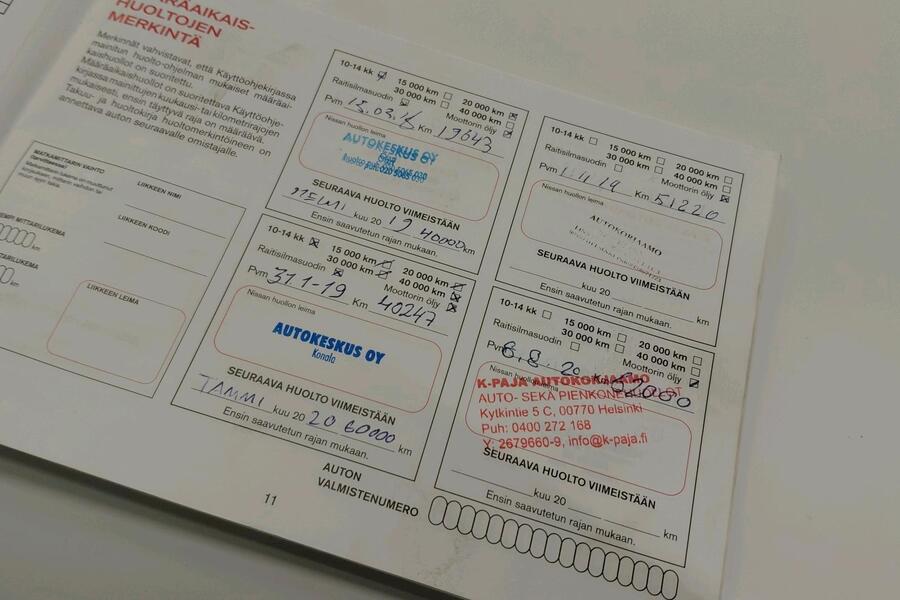 MÄÄRÄAIKAIS-
HUOLTOJEN
MERKINTÄ
Merkinnät vahvistavat, että Käyttöohjekirjassa
mainitun huolto-ohjelman mukaiset määräai-
kaishuollot on suoritettu.
Määräaikaishuollot on suoritettava Käyttöohje-
kirjassa mainittujen kuukausi- tai kilometrirajojen
mukaisesti, ensin täyttyvä raja on määräävä.
Takuu- ja huoltokirja huoltomerkintöineen on
annettava auton seuraavalle omistajalle.
MATKAMITTARIN VAIHTO
LIIKKEEN NIMI
LIIKKEEN KOODI
MITTARILUKEMA
km
km
LIIKKEEN LEIMA
10-14 kk 15 000 km 20 000 km
30 000 km 40 000 km
Raitisilmasuodin Moottorin öljy
Pvm Km 19643
Nissan huollon leima
AUTOKESKUS OY
SEURAAVA HUOLTO VIIMEISTÄÄN
HELMI kuu 20 19 40000 km
Ensin saavutetun rajan mukaan.
10-14 kk 15 000 km 20 000 km
30 000 km 40 000 km
Raitisilmasuodin Moottorin öljy
Pvm 31.1-19 Km 40247
Nissan huollon leima
AUTOKESKUS OY
Konala
SEURAAVA HUOLTO VIIMEISTÄÄN
TAMMI kuu 20 20 60000 km
Ensin saavutetun rajan mukaan.
10-14 kk 15 000 km 20 000 km
30 000 km 40 000 km
Raitisilmasuodin Moottorin öljy
Pvm 1.11.19 Km 51220
Nissan huollon leima
AUTOKORJAAMO
SEURAAVA HUOLTO VIIMEISTÄÄN
kuu 20 km
Ensin saavutetun rajan mukaan.
10-14 kk 15 000 km 20 000 km
30 000 km 40 000 km
Raitisilmasuodin Moottorin öljy
Pvm 6.8.20 Km 62000
Nissan huollon leima
K-PAJA AUTOKORJAAMO
AUTO- SEKÄ PIENKONEHUOLLOT
Kylkintie 5 C, 00770 Helsinki
Puh: 0400 272 168
Y: 2679660-9, info@k-paja.fi
SEURAAVA HUOLTO VIIMEISTÄÄN
kuu 20 km
Ensin saavutetun rajan mukaan.
11
AUTON
VALMISTENUMERO